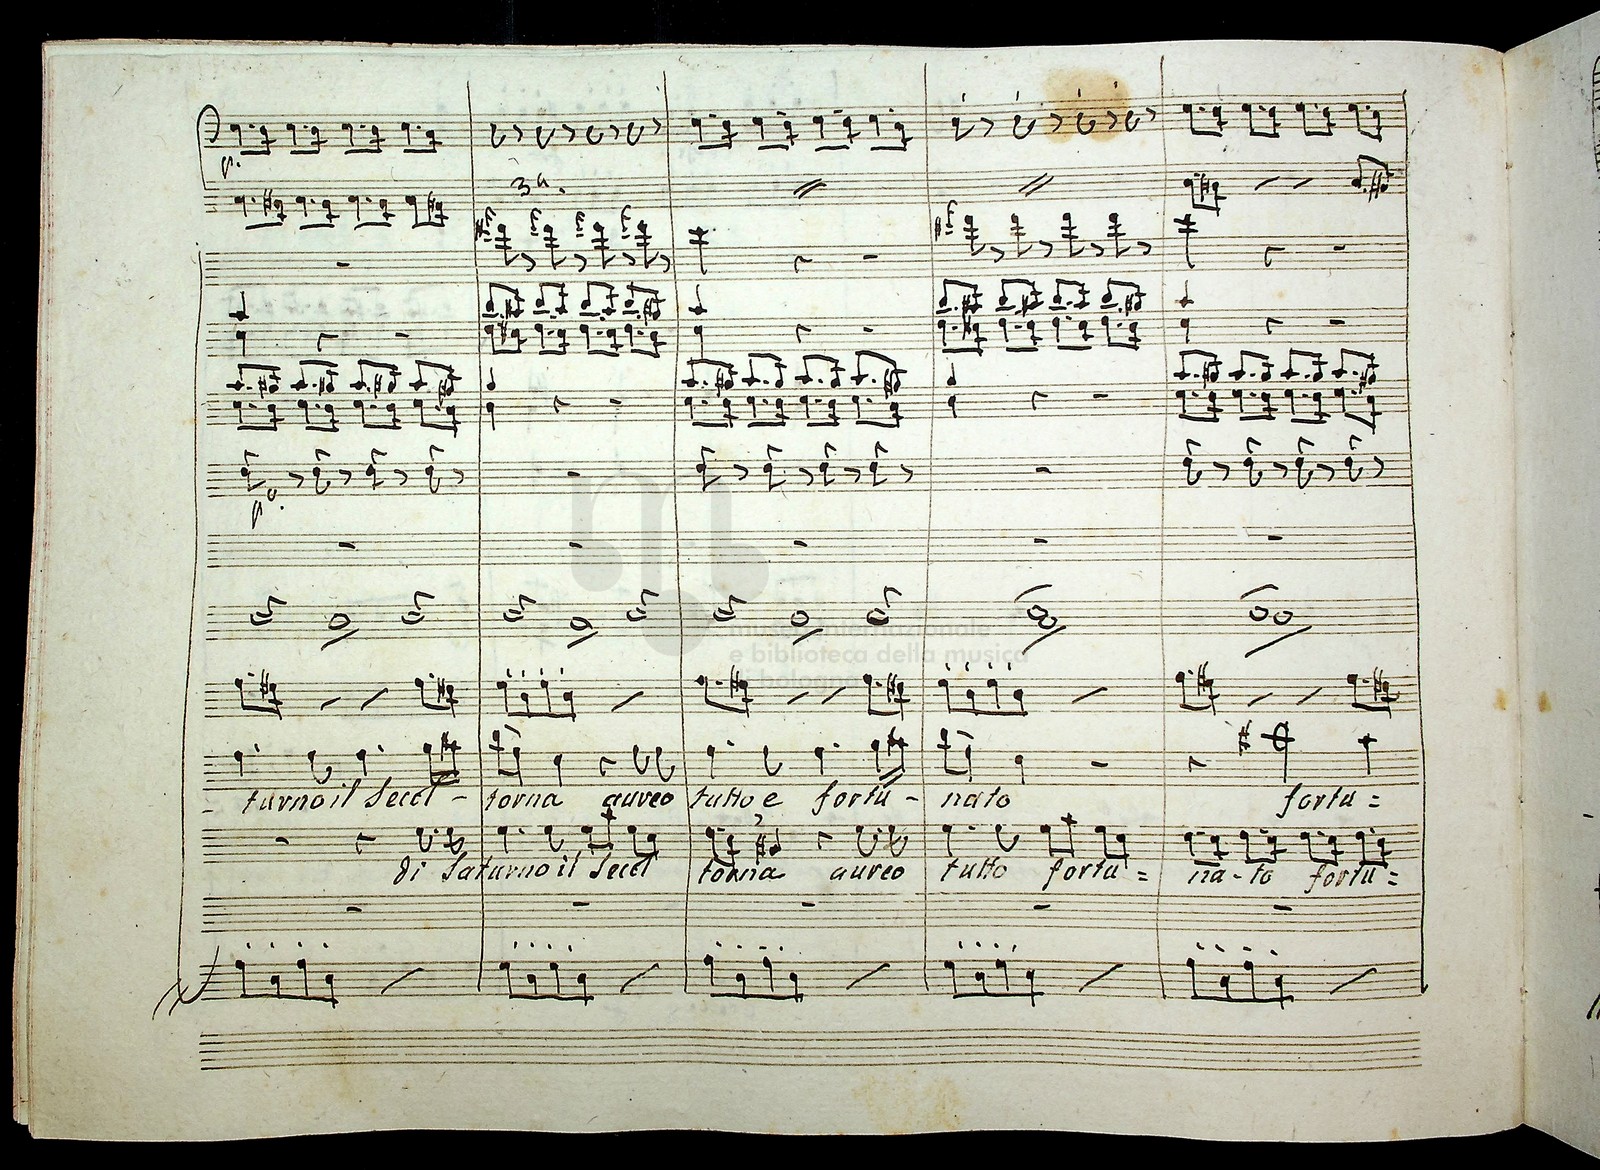 p.
3ª.
pº.
museo internazionale
e biblioteca della musica
di bologna
turno il Secol - torna aureo tutto e fortu - nato fortu =
di Saturno il Secol torna aureo tutto fortu = na - to fortu =